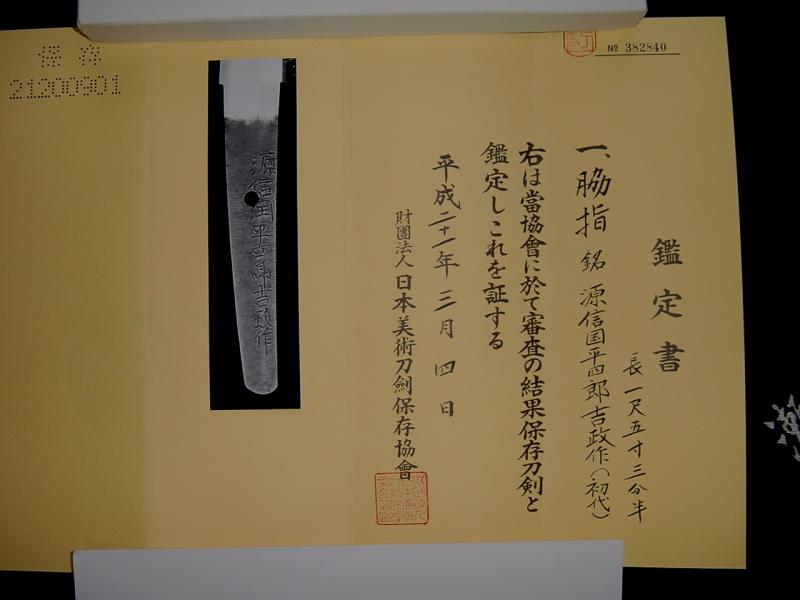 № 382840
鑑定書
一、脇指 銘 源信国平四郎吉政作(初代)
長一尺五寸三分半
右は當協會に於て審査の結果保存刀剣と
鑑定しこれを証する
平成二十一年三月四日
財團法人 日本美術刀劍保存協會
源信国平四郎吉政作
保存
21200901